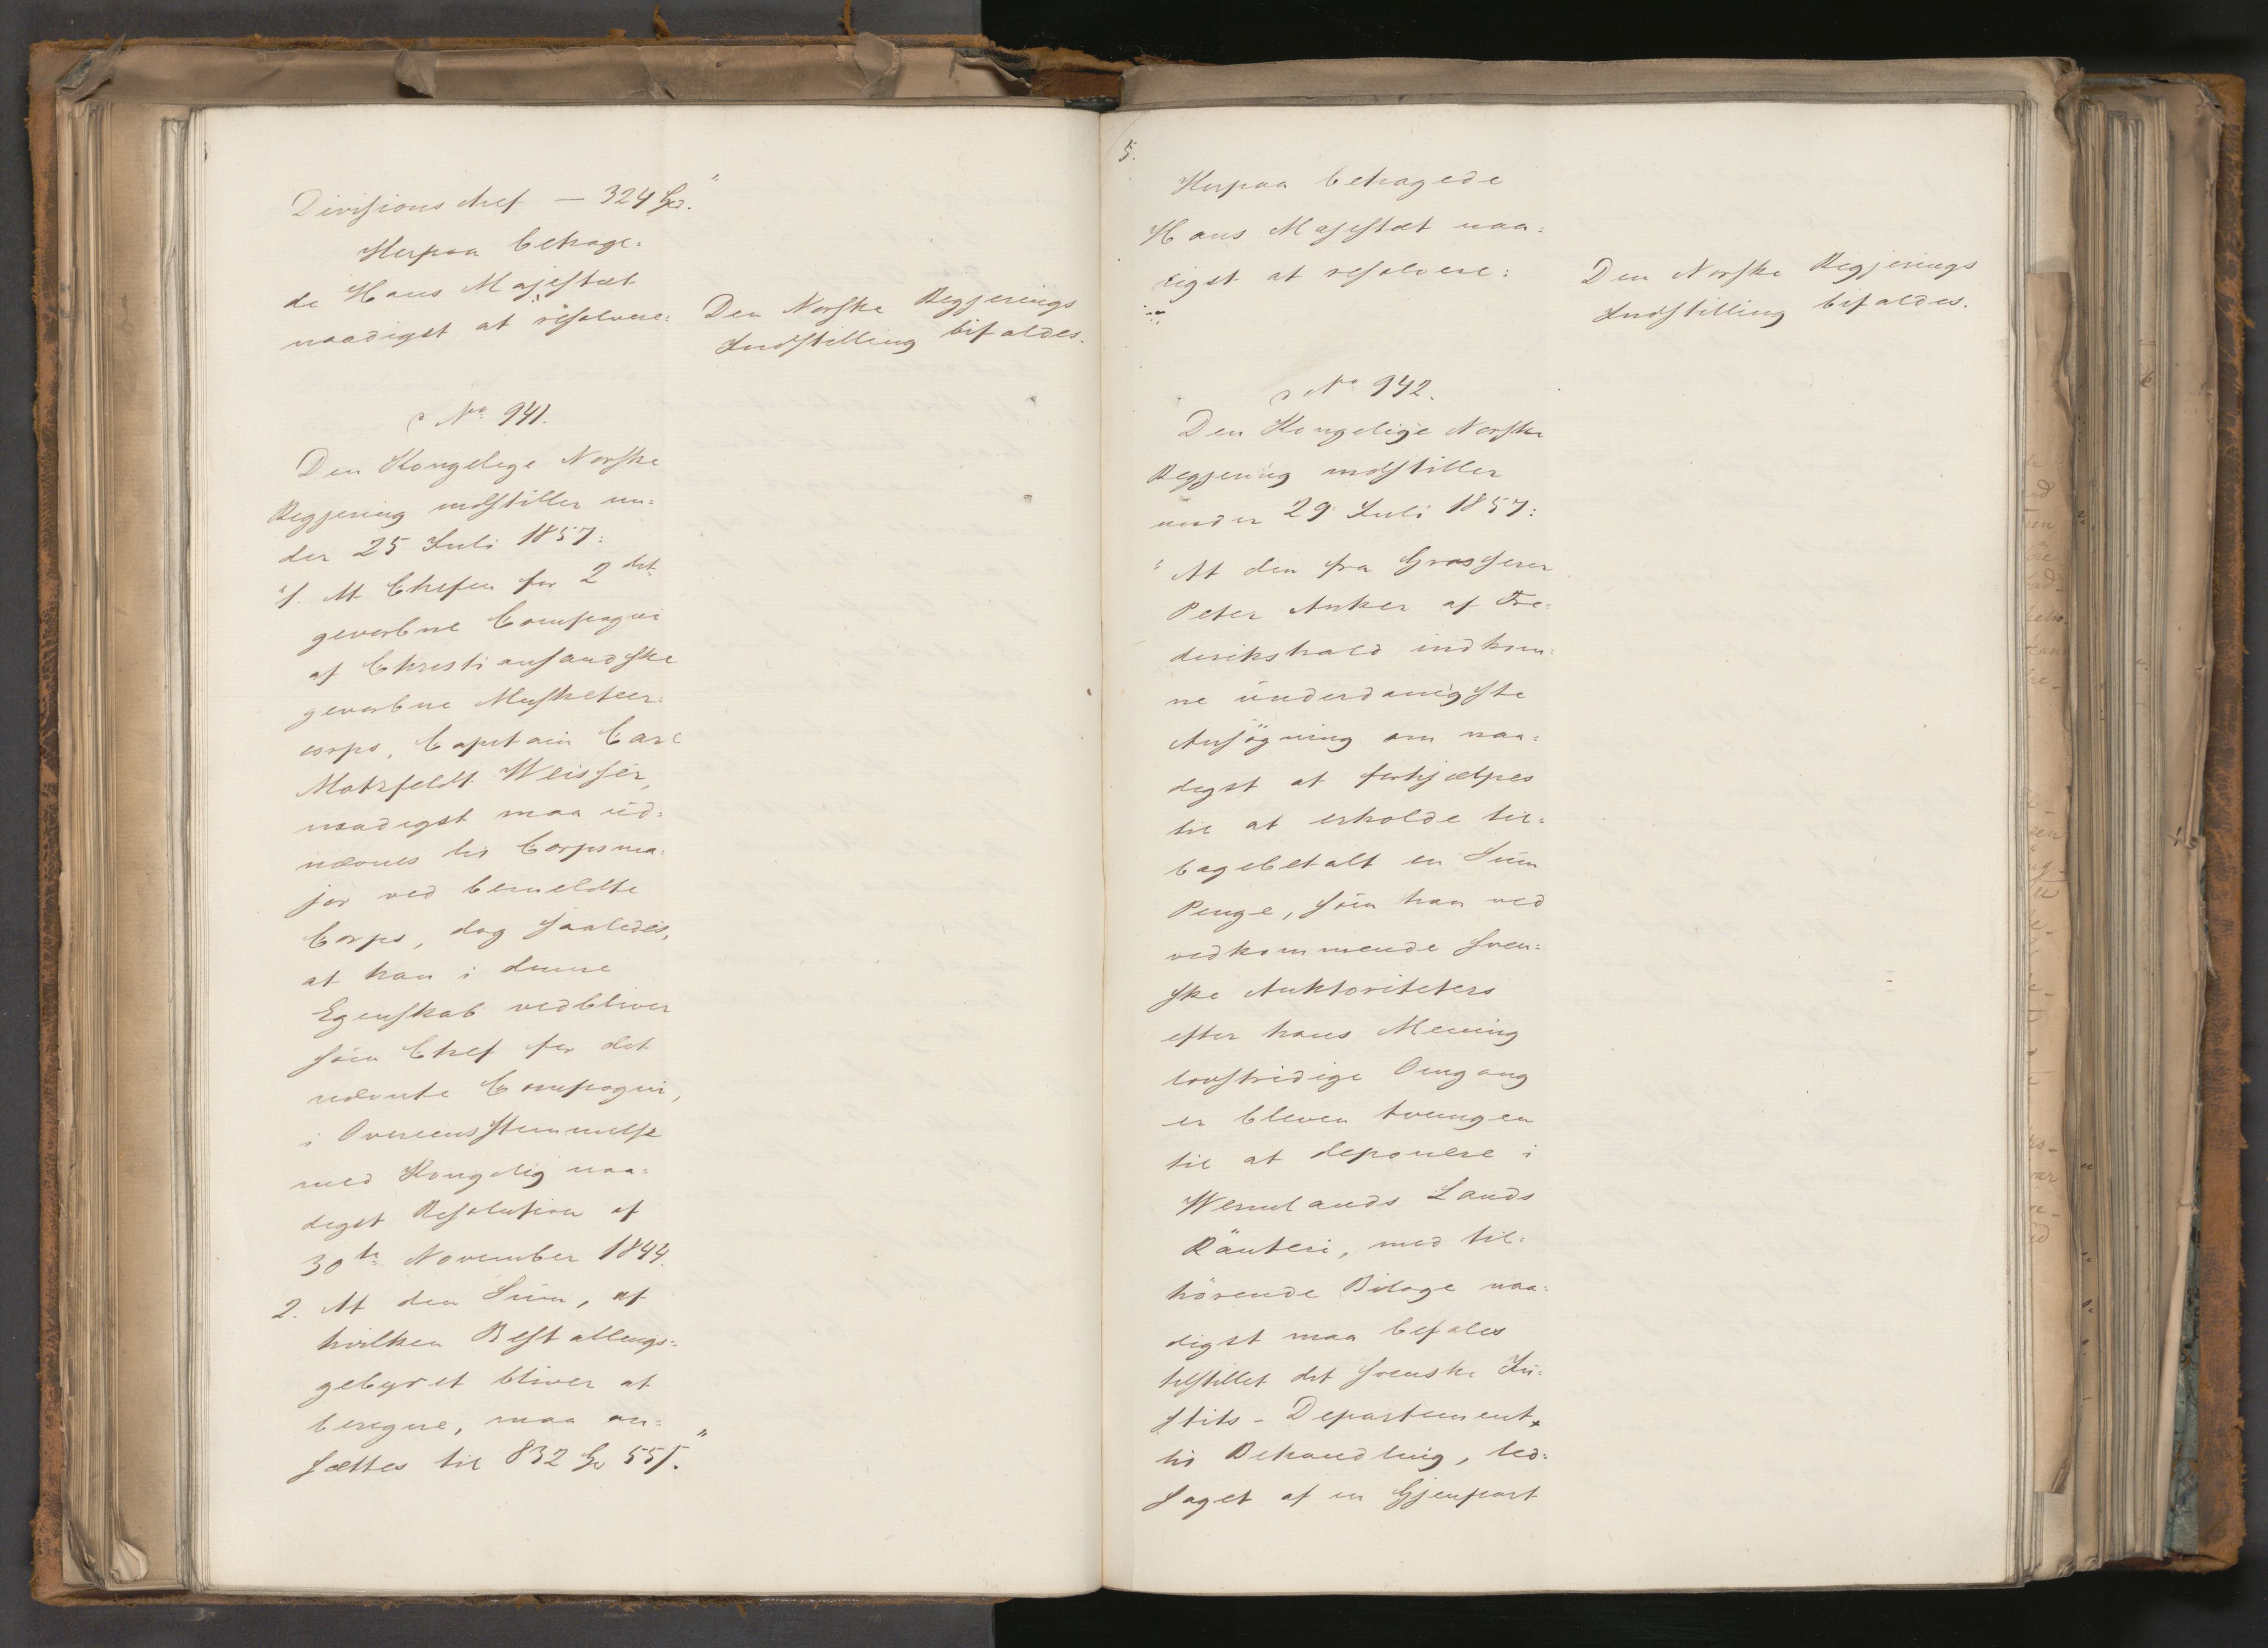 Divisionschef — 324 Spd."
Herpaa behage-
de Hans Majestæt
naadigst at resolvere:
Den Norske Regjerings
Indstilling bifaldes.
No 941.
Den Kongelige Norske
Regjering indstiller un-
der 25 Juli 1857:
"1. At Chefen for 2det
gevorbne Compagni
af Christiansandske
gevorbne Musketeer-
corps, Capitain Carl
Motzfeldt Weisser,
naadigst maa ud-
nævnes til Corpsma-
jor ved bemeldte
Corps, dog saaledes,
at han i denne
Egenskab vedbliver
som Chef for det
nævnte Compagni,
i Overeensstemmelse
med Kongelig naa-
digst Resolution af
30te November 1844.
2. At den Sum, af
hvilken Bestallings-
gebyret bliver at
beregne, maa an-
sættes til 832 Spd 55 s."
5.
Herpaa behagede
Hans Majestæt naa-
digst at resolvere:
Den Norske Regjerings
Indstilling bifaldes.
No 942.
Den Kongelige Norske
Regjering indstiller
under 29 Juli 1857:
"At den fra Grosserer
Peter Anker af Fre-
derikshald indkom-
ne underdanigste
Ansögning om naa-
digst at forhjælpes
til at erholde til-
bagebetalt en Sum
Penge, som han ved
vedkommende Sven-
ske Auktoriteters
efter hans Mening
lovstridige Omgang
er bleven tvungen
til at deponere i
Wermlands Lands
Ränteri, med til-
hörende Bilage naa-
digst maa befales
tilstillet det Svenske Ju-
stits-Departement
til Behandling, led-
saget af en Gjenpart